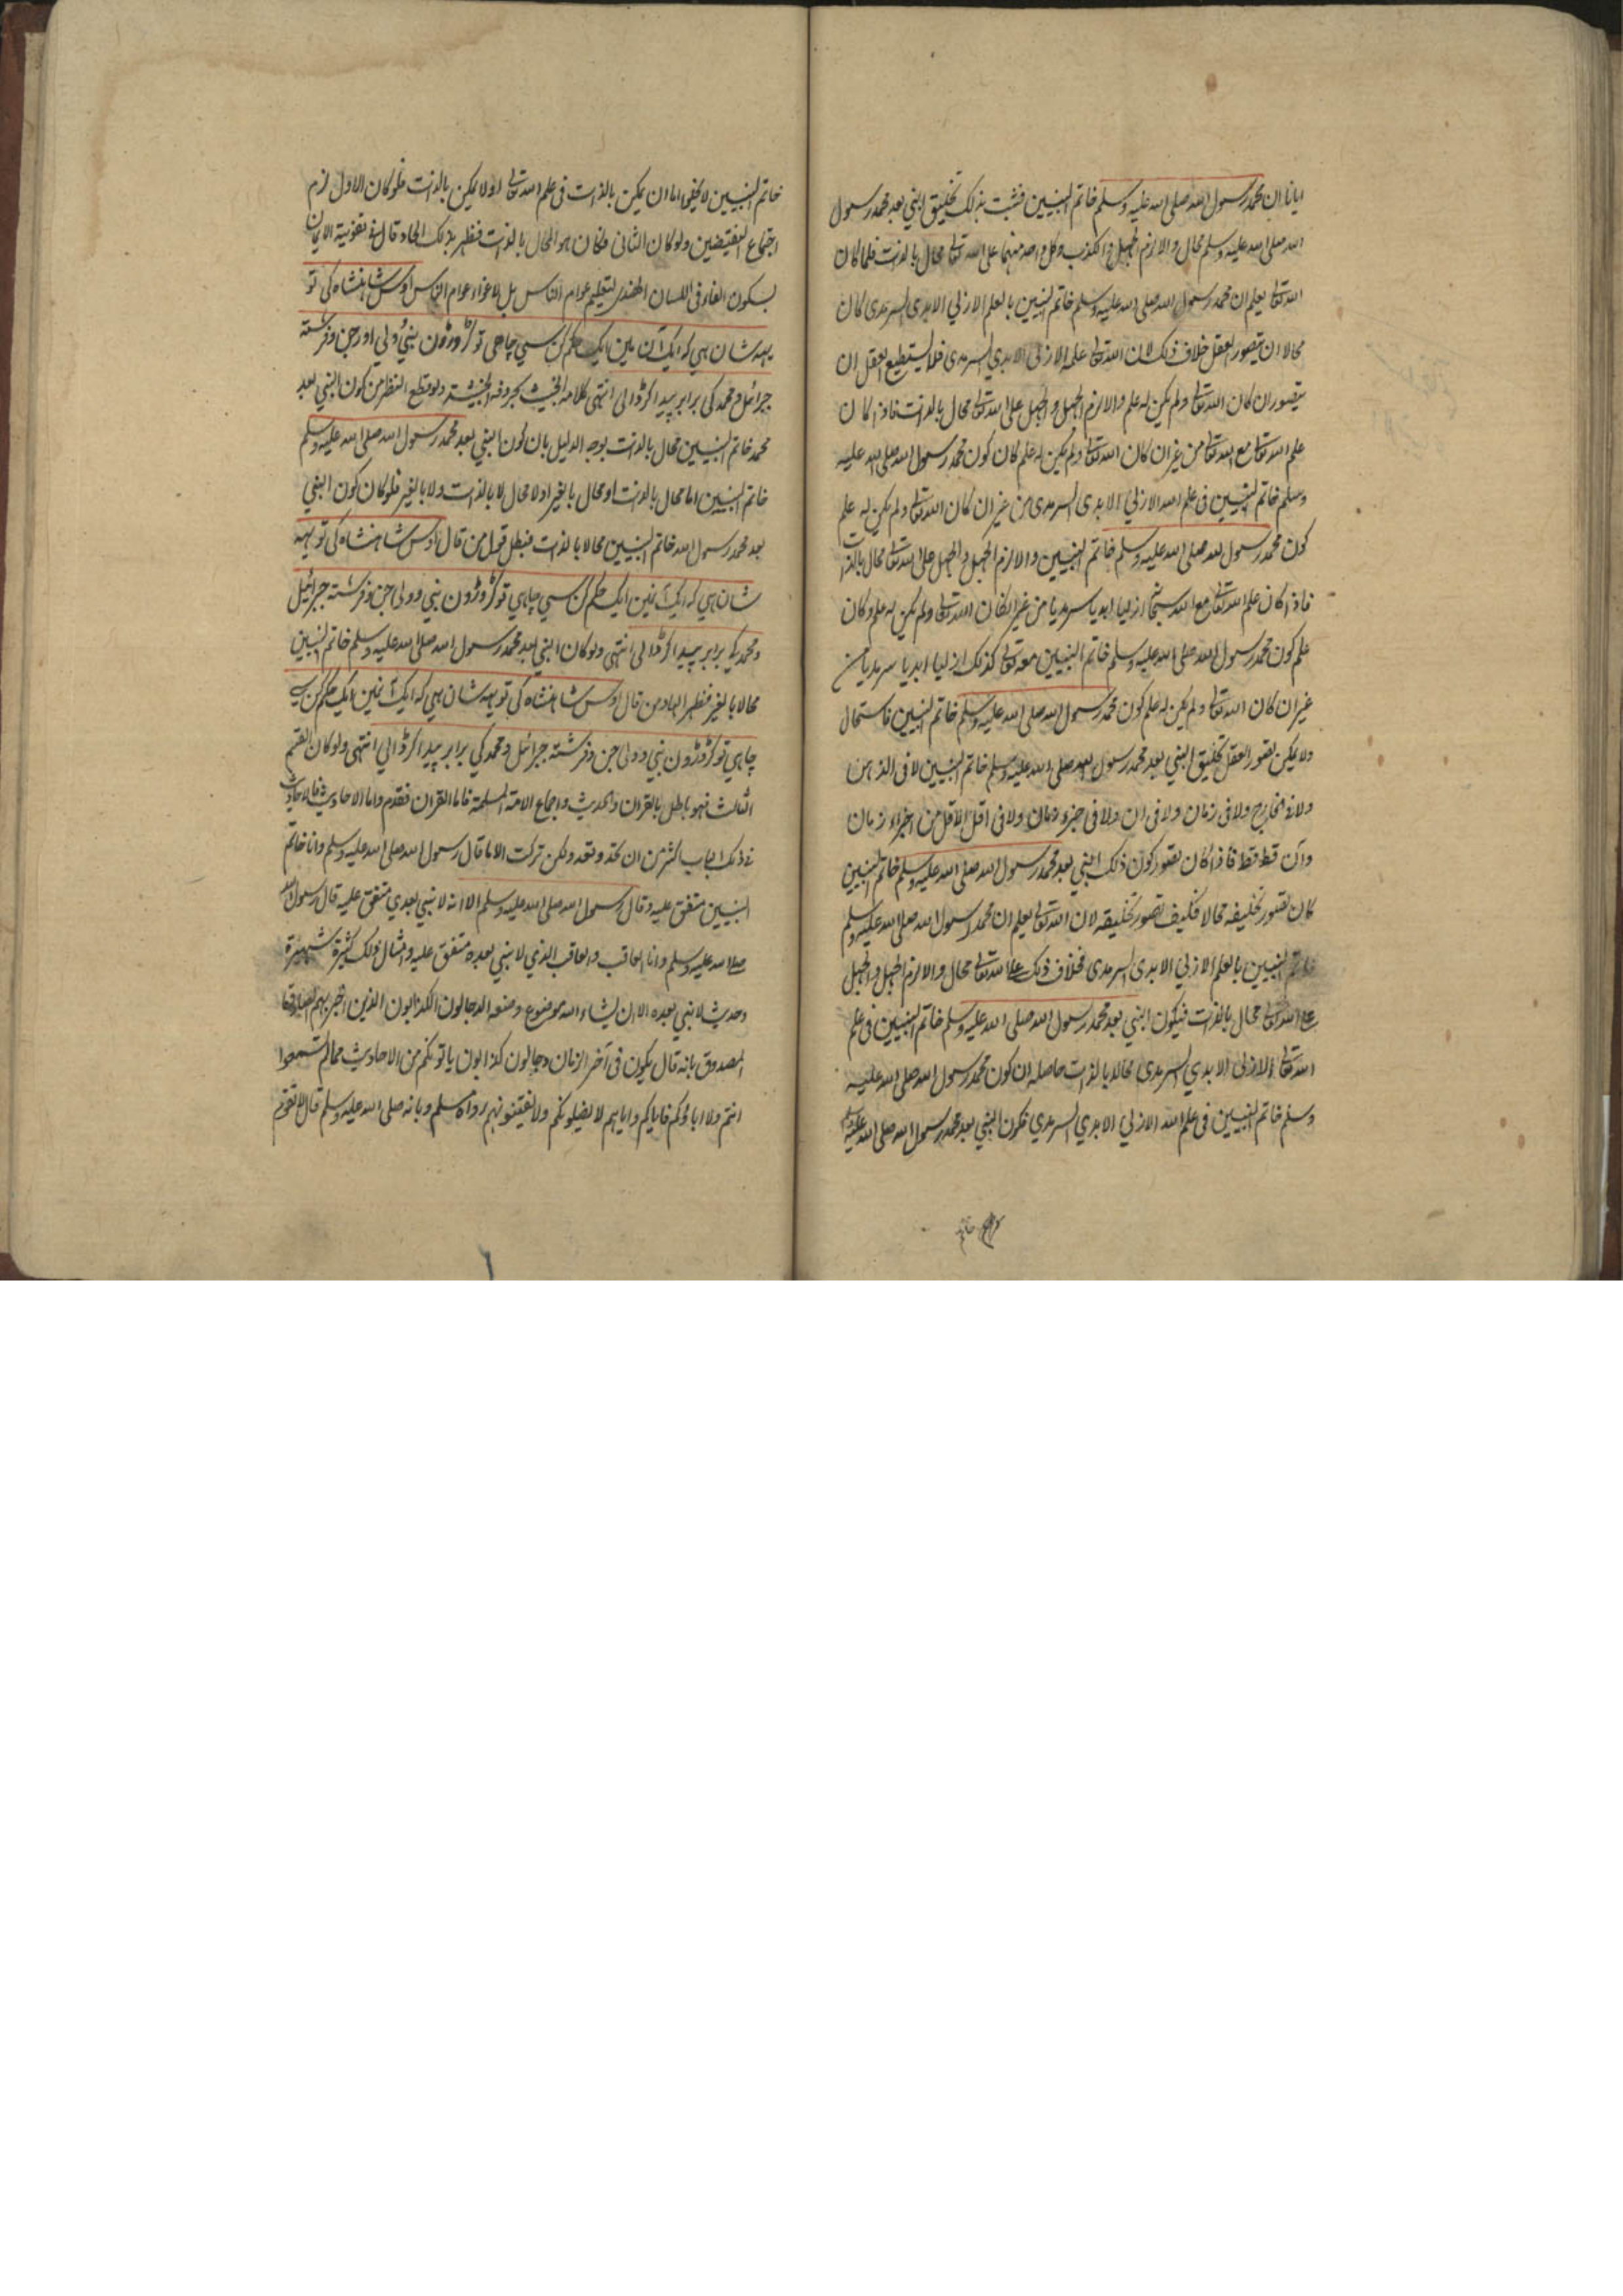 ايانا ان محمد رسول الله صلى الله عليه وسلم خاتم النبيين فثبت بذلك تخليق النبي بعد محمد رسول
الله صلى الله عليه وسلم محال والا لزم الجهل والكذب وكل واحد منهما على الله تعالى محال بالذات فلما كان
الله تعالى يعلم ان محمد رسول الله صلى الله عليه وسلم خاتم النبيين بالعلم الازلي الابدي السرمدي كان
محالا ان يتصور العقل خلاف ذلك لان الله تعالى علمه الازلي الابدي السرمدي فلا يستطيع العقل ان
يتصور ان كان الله تعالى ولم يكن له علم والا لزم الجهل والجهل على الله تعالى محال بالذات فاذا كان
علم الله تعالى مع الله تعالى من غير ان كان الله تعالى ولم يكن له علم كان كون محمد رسول الله صلى الله عليه
وسلم خاتم النبيين في علم الله الازلي الابدي السرمدي من غير ان كان الله تعالى ولم يكن له علم
كون محمد رسول الله صلى الله عليه وسلم خاتم النبيين والا لزم الجهل والجهل على الله تعالى محال بالذات
فاذا كان علم الله تعالى مع الله سبحانه ازليا ابديا سرمديا من غير ان كان الله تعالى ولم يكن له علم وكان
علم كون محمد رسول الله صلى الله عليه وسلم خاتم النبيين معه تعالى كذلك ازليا ابديا سرمديا من
غير ان كان الله تعالى ولم يكن له علم كون محمد رسول الله صلى الله عليه وسلم خاتم النبيين فاستحال
ولا يمكن تصور العقل تخليق النبي بعد محمد رسول الله صلى الله عليه وسلم خاتم النبيين لا في الذهن
ولا في الخارج ولا في زمان ولا في ان ولا في جزء زمان ولا في اقل الاقل من اجزاء زمان
وآن قط قط فاذا كان تصور كون ذلك النبي بعد محمد رسول الله صلى الله عليه وسلم خاتم النبيين
كان تصور تخليقه محالا فكيف تصور تخليقه لان الله تعالى يعلم ان محمد رسول الله صلى الله عليه وسلم
خاتم النبيين بالعلم الازلي الابدي السرمدي فخلاف ذلك على الله تعالى محال والا لزم الجهل والجهل
على الله تعالى محال بالذات فيكون النبي بعد محمد رسول الله صلى الله عليه وسلم خاتم النبيين في علم
الله تعالى الازلي الابدي السرمدي محالا بالذات حاصله ان كون محمد رسول الله صلى الله عليه
وسلم خاتم النبيين في علم الله الازلي الابدي السرمدي فكون النبي بعد محمد رسول الله صلى الله عليه وسلم
خاتم
خاتم النبيين لا يخفوا اما ان يمكن بالذات في علم الله تعالى او لا يمكن بالذات فلو كان الاول لزم
اجتماع النقيضين ولو كان الثاني فكان هو المحال بالذات فظهر بذلك الحاد قال في تقوية الايمان
بسكون الفاء في اللسان الهندي لتعليم عوام الناس بل لاغواء عوام الناس اوس شاهنشاه كي تو
يهه شان هي كه ايك آن مين ايك حكم كن سي چاهي تو كڑوڑون نبي وولي اور جن وفرشته
جبرائيل ومحمد كي برابر پيدا كر ڈالي انتهى كلامه الخبيث بحروفه الخبيثة ولو قطع النظر من كون النبي بعد
محمد خاتم النبيين محال بالذات بوجه الدليل بان كون النبي بعد محمد رسول الله صلى الله عليه وسلم
خاتم النبيين اما محال بالذات او محال بالغير او لا محال لا بالذات ولا بالغير فلو كان كون النبي
بعد محمد رسول الله خاتم النبيين محالا بالذات فبطل قول من قال اوس شاهنشاه كي تو يهه
شان هي كه ايك آنمين ايك حكم كن سي چاهي تو كڑوڑون نبي وولي جن وفرشته جبرائيل
ومحمد كي برابر پيدا كر ڈالي انتهى ولو كان النبي بعد محمد رسول الله صلى الله عليه وسلم خاتم النبيين
محالا بالغير فظهر الحاد من قال اوس شاهنشاه كي تو يهه شان هي كه ايك آنمين ايك حكم كن سي
چاهي تو كڑوڑون نبي وولي جن وفرشته جبرائيل ومحمد كي برابر پيدا كر ڈالي انتهى ولو كان القسم
الثالث فهو باطل بالقران والحديث واجماع الامة المسلمة فاما القران فقدم واما الاحاديث فالاحاديث
في ذلك الباب اكثر من ان تحد وتعد ولكن تركت الا ما قال رسول الله صلى الله عليه وسلم وانا خاتم
النبيين متفق عليه وقال رسول الله صلى الله عليه وسلم الا انه لا نبي بعدي متفق عليه قال رسول الله
صلى الله عليه وسلم وانا العاقب والعاقب الذي لا نبي بعده متفق عليه وامثال ذلك كثيرة شهيرة
وحديث لا نبي بعده الا ان يشاء الله موضوع وضعه الدجالون الكذابون الذين اخبر بهم الصادق
المصدوق بانه قال يكون في آخر الزمان دجالون كذابون ياتونكم من الاحاديث مما لم تسمعوا
انتم ولا اباؤكم فاياكم واياهم لا يضلونكم ولا يفتنونهم رواه مسلم وبانه صلى الله عليه وسلم قال لا تقوم